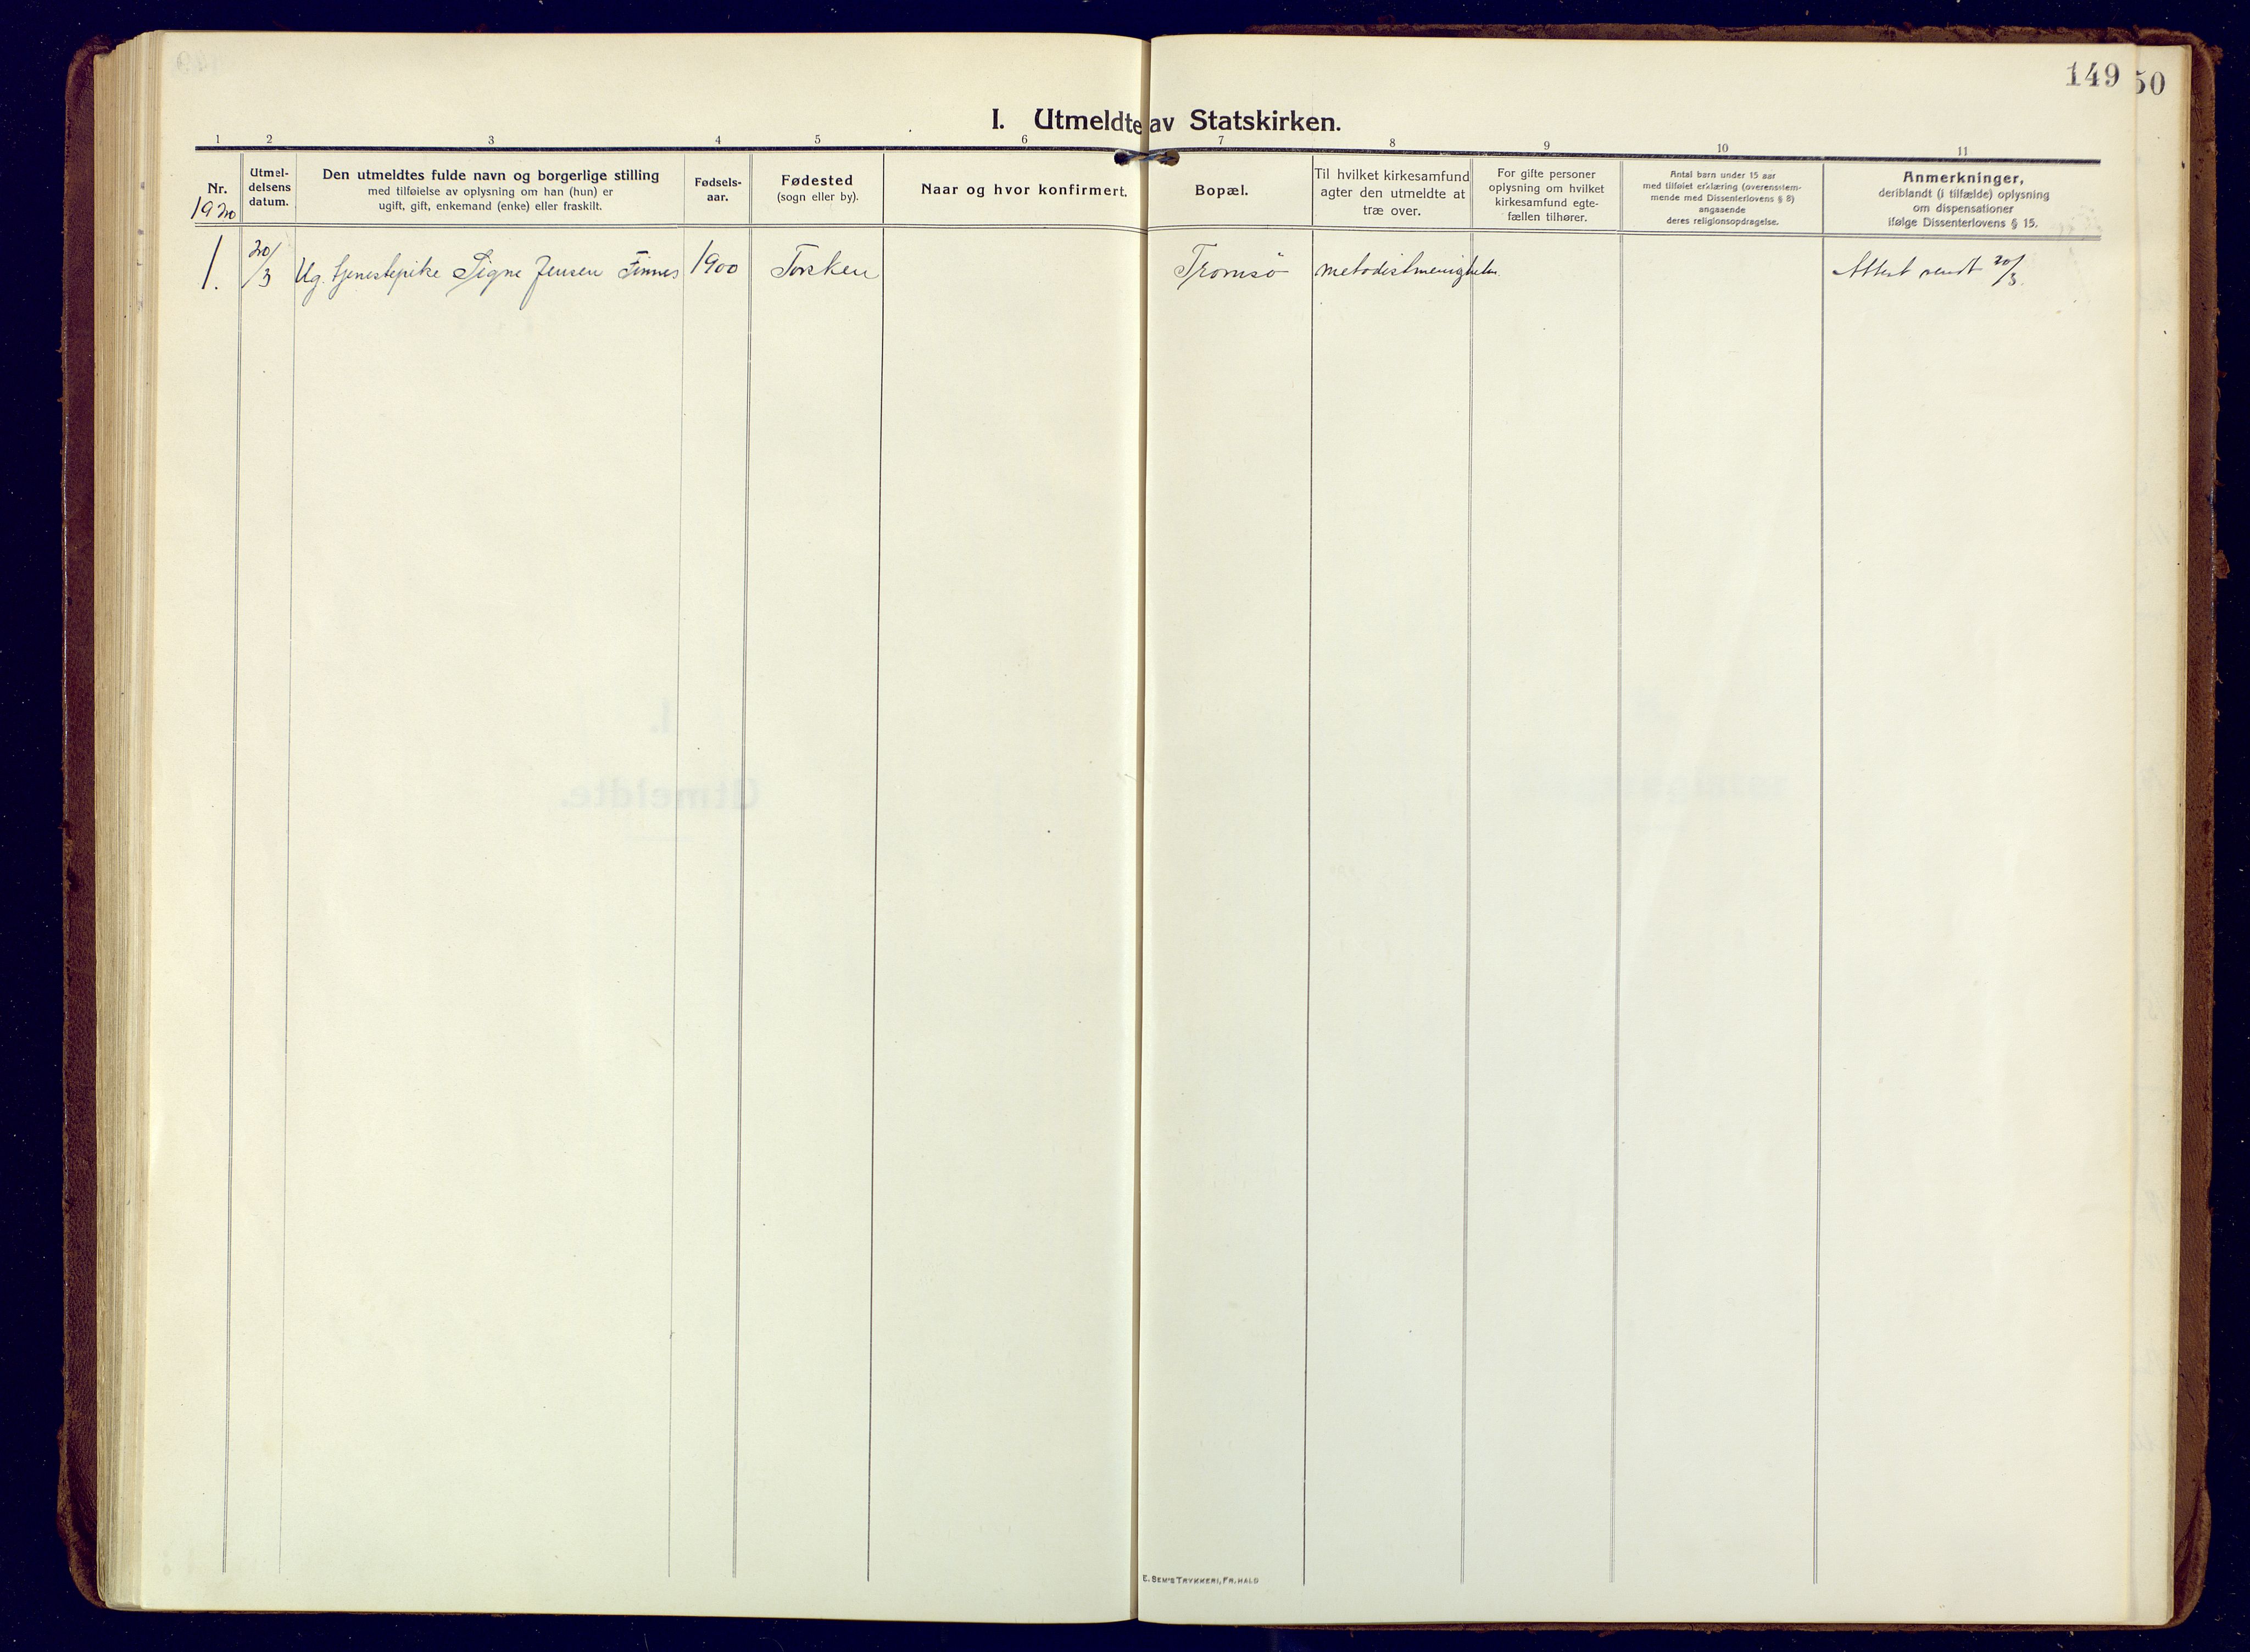 149 50
I. Utmeldte av Statskirken.
1 2 3 4 5 6 7 8 9 10 11
Nr.
1920
Utmel-
delsens
datum.
Den utmeldtes fulde navn og borgerlige stilling
med tilføielse av oplysning om han (hun) er
ugift, gift, enkemand (enke) eller fraskilt.
Fødsels-
aar.
Fødested
(sogn eller by).
Naar og hvor konfirmert.
Bopæl.
Til hvilket kirkesamfund
agter den utmeldte at
træ over.
For gifte personer
oplysning om hvilket
kirkesamfund egte-
fællen tilhører.
Antal barn under 15 aar
med tilføiet erklæring (overensstem-
mende med Dissenterlovens § 8)
angaaende
deres religionsopdragelse.
Anmerkninger,
deriblandt (i tilfælde) oplysning
om dispensationer
ifølge Dissenterlovens § 15.
1. 20/3 Ug. tjenestepike Signe Jensen Finnes 1900 Torsken Tromsö metodistmenigheten. Attest sendt 20/3.
E. SEM'S TRYKKERI, FR. HALD